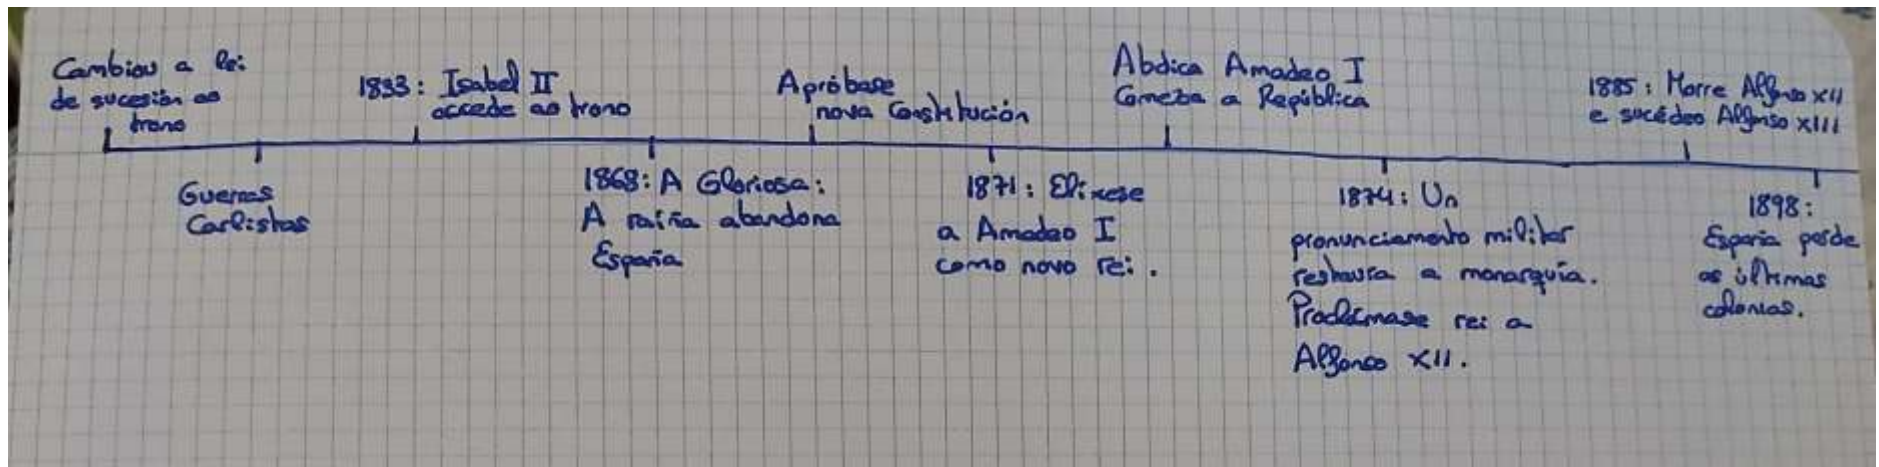 Cambiou a lei
de sucesión ao
trono
Guerras
Carlistas
1833: Isabel II
accede ao trono
1868: A Gloriosa:
A raíña abandona
España
Apróbase
nova Constitución
1871: Elixese
a Amadeo I
como novo rei.
Abdica Amadeo I
Comeza a República
1874: Un
pronunciamento militar
restaura a monarquía.
Proclámase rei a
Alfonso XII.
1885: Morre Alfonso XII
e sucédeo Alfonso XIII
1898:
España perde
as últimas
colonias.